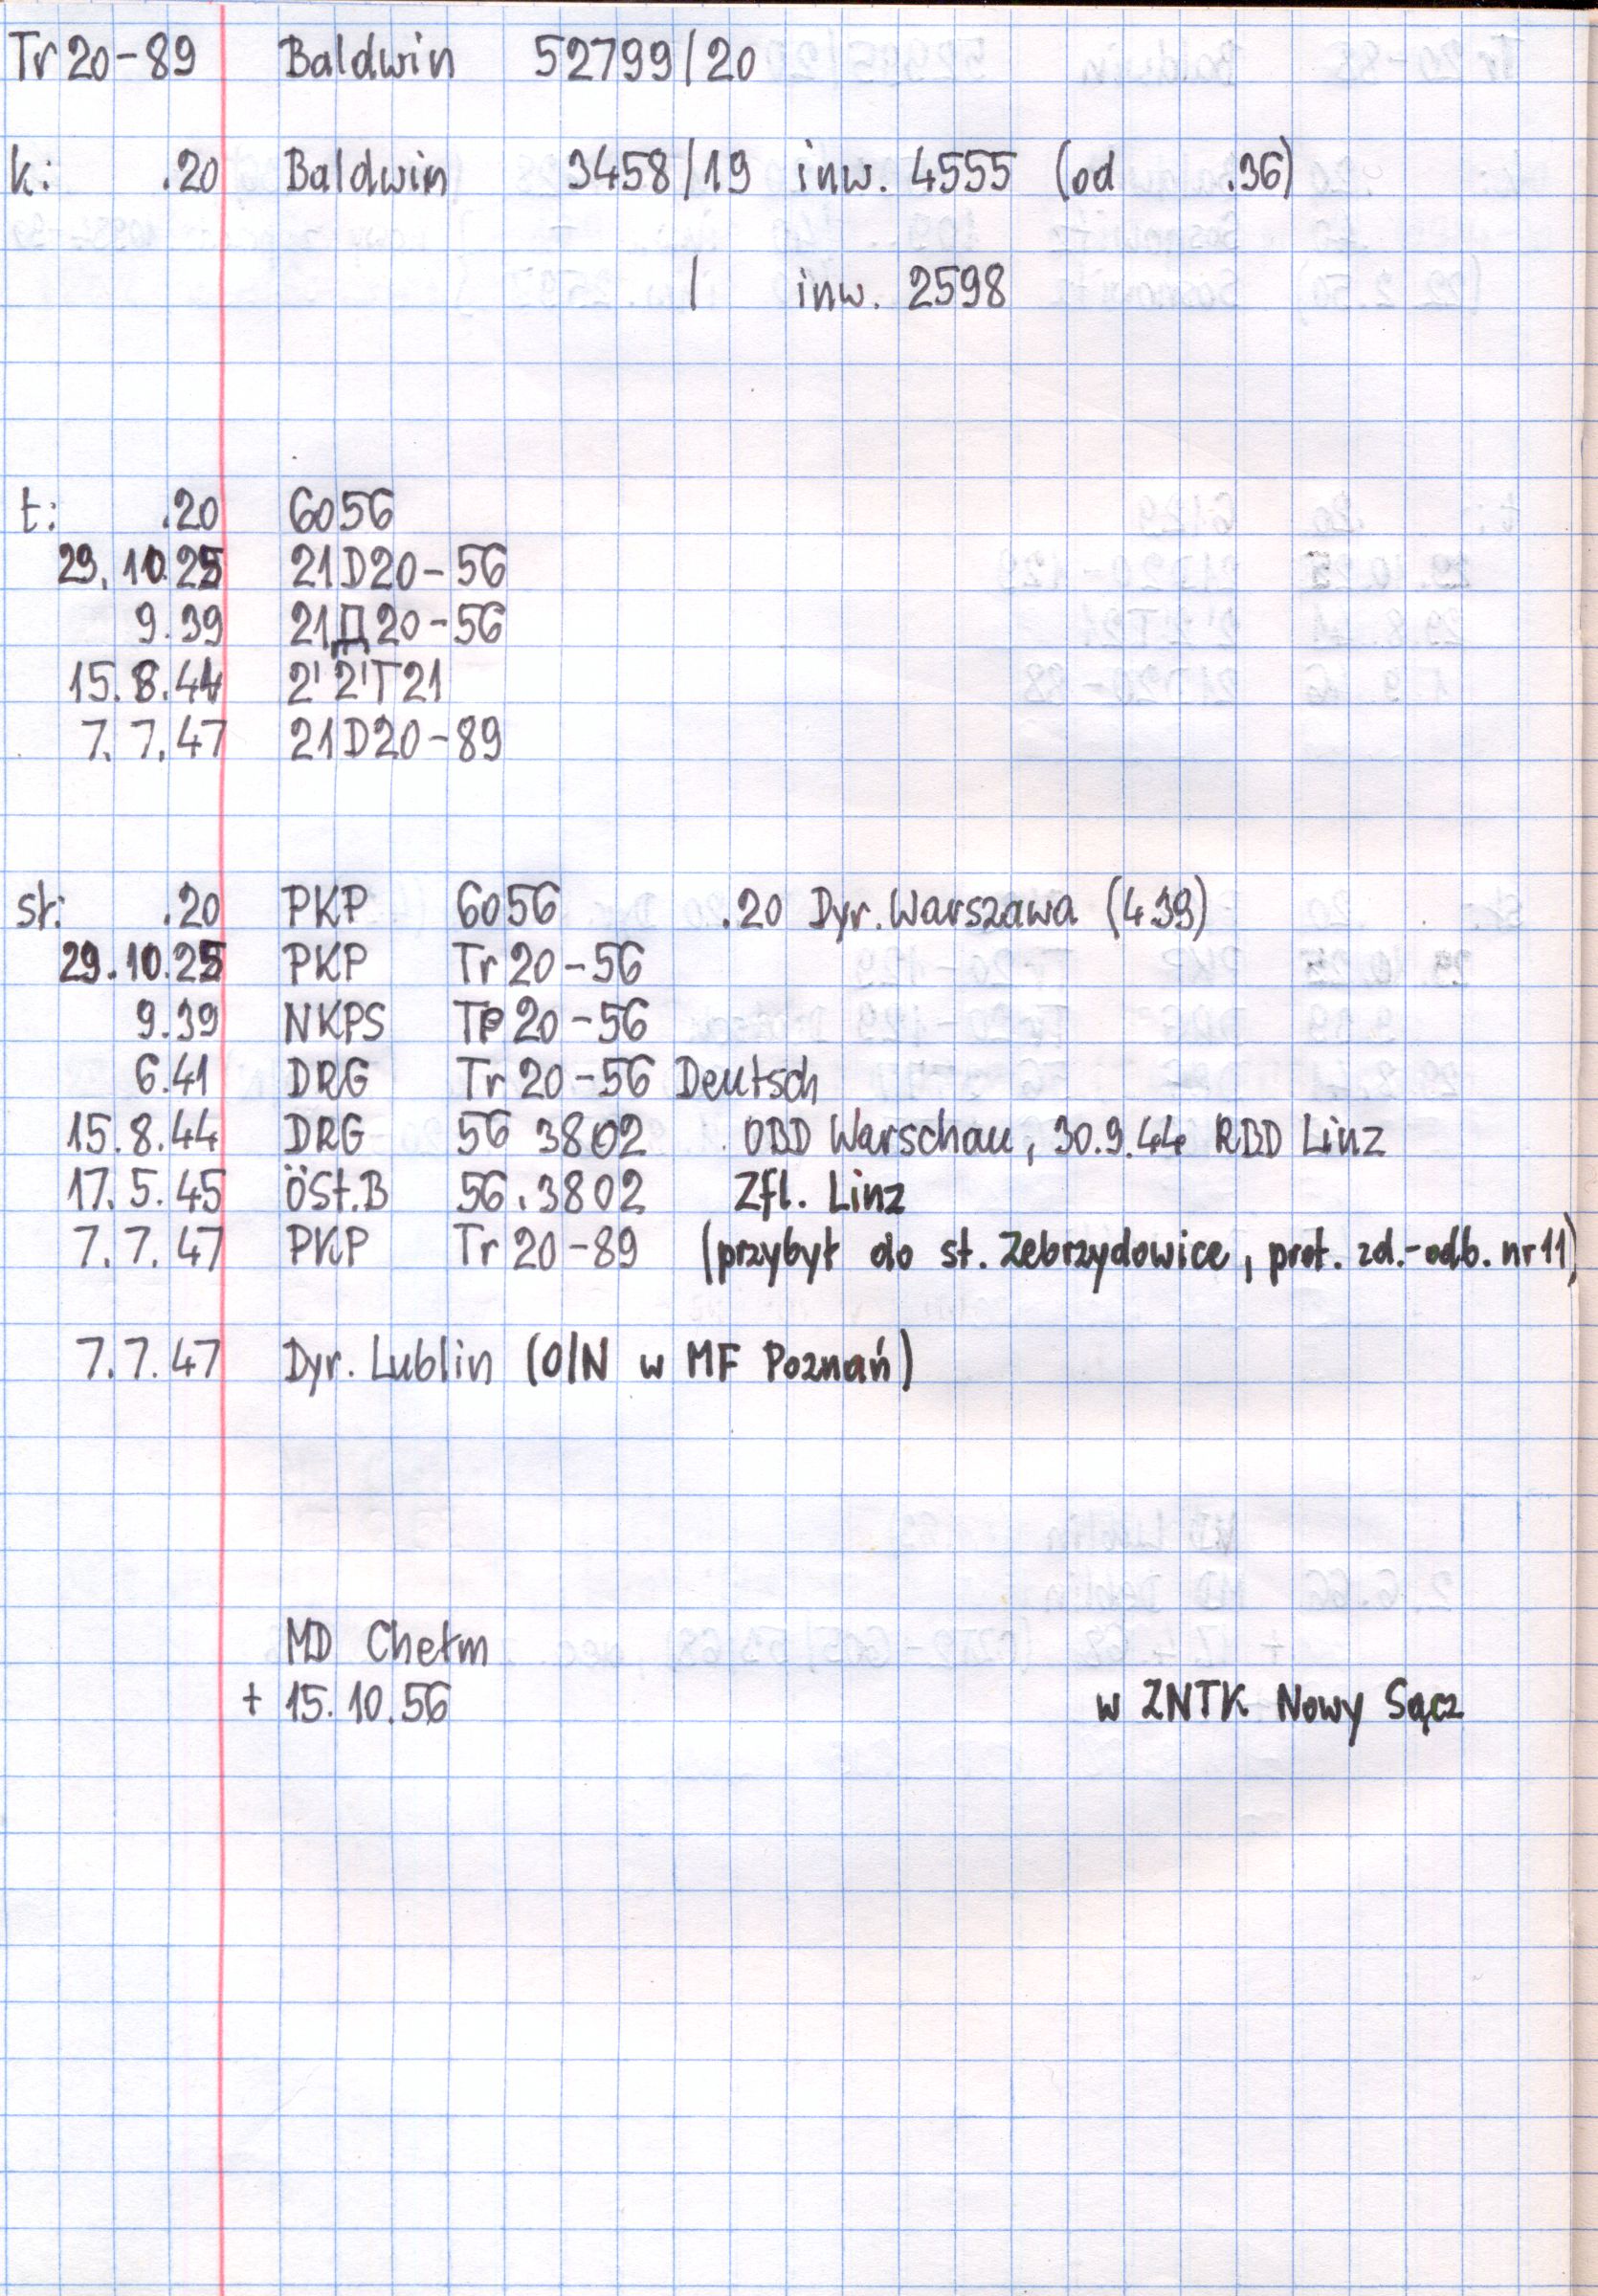 Tr 20-89 Baldwin 52799/20
k: .20 Baldwin 3458/19 inw. 4555 (od .36)
/ inw. 2598
t: .20 6056
29.10.25 21D20-56
9.39 21Д20-56
15.8.44 2'2'T21
7.7.47 21D20-89
sł: .20 PKP 6056 .20 Dyr. Warszawa (4 39)
29.10.25 PKP Tr 20-56
9.39 NKPS Tр 20-56
6.41 DRG Tr 20-56 Deutsch
15.8.44 DRG 56 3802 OBD Warschau, 30.9.44 RBD Linz
17.5.45 ÖSt.B 56.3802 Zfl. Linz
7.7.47 PKP Tr 20-89 (przybył do st. Zebrzydowice, prot. zd.-odb. nr 11)
7.7.47 Dyr. Lublin (O/N w MF Poznań)
MD Chełm
+ 15.10.56 w ZNTK Nowy Sącz